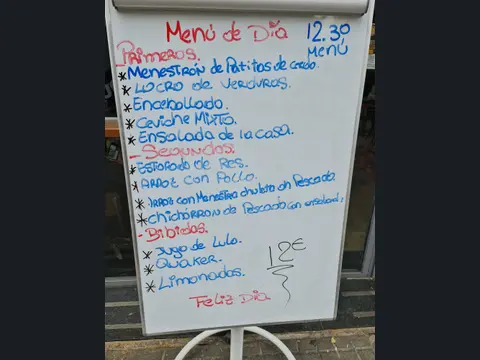 Menú de Día 12.30
Menú
Primeros.
* Menestrón de Patitas de cerdo.
* Locro de verduras.
* Encebollado.
* Ceviche Mixto.
* Ensalada de la casa.
- Segundos.
* Estofado de Res.
* Arroz con Pollo.
* Arroz con Menestra chuleta oh Pescado
* Chicharron de Pescado con ensalada
- Bibidas.
* Jugo de Lulo.
* Quaker.
* Limonadas.
12€
Feliz Dia